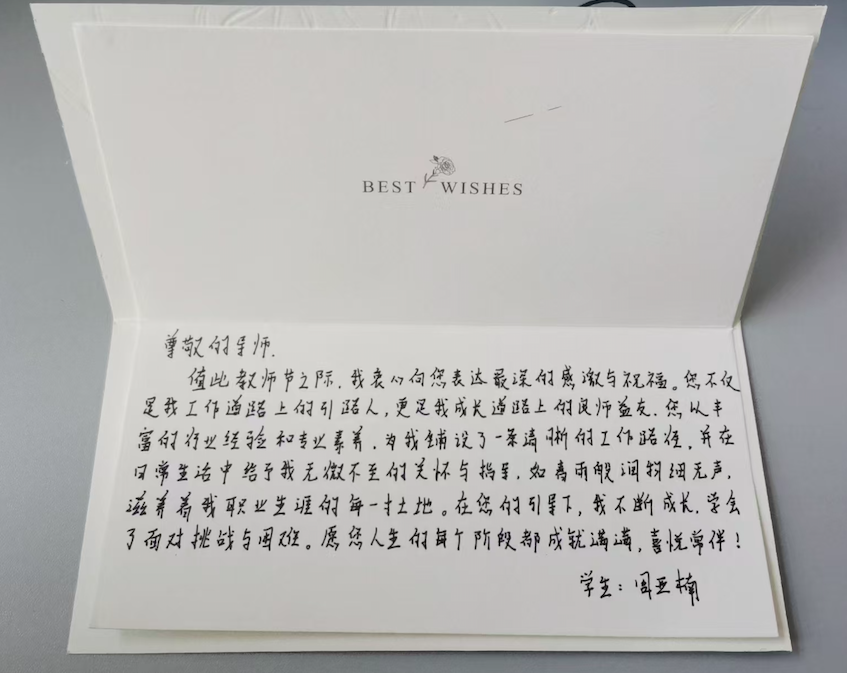 BEST WISHES
尊敬的导师,
值此教师节之际,我衷心向您表达最深的感激与祝福。您不仅
是我工作道路上的引路人,更是我成长道路上的良师益友,您从丰
富的行业经验和专业素养,为我铺设了一条清晰的工作路径,并在
日常生活中给于我无微不至的关怀与指导,如春雨般润物细无声,
滋养着我职业生涯的每一寸土地。在您的引导下,我不断成长,学会
了面对挑战与困难。愿您人生的每个阶段都成就满满,喜悦常伴!
学生:周亚楠